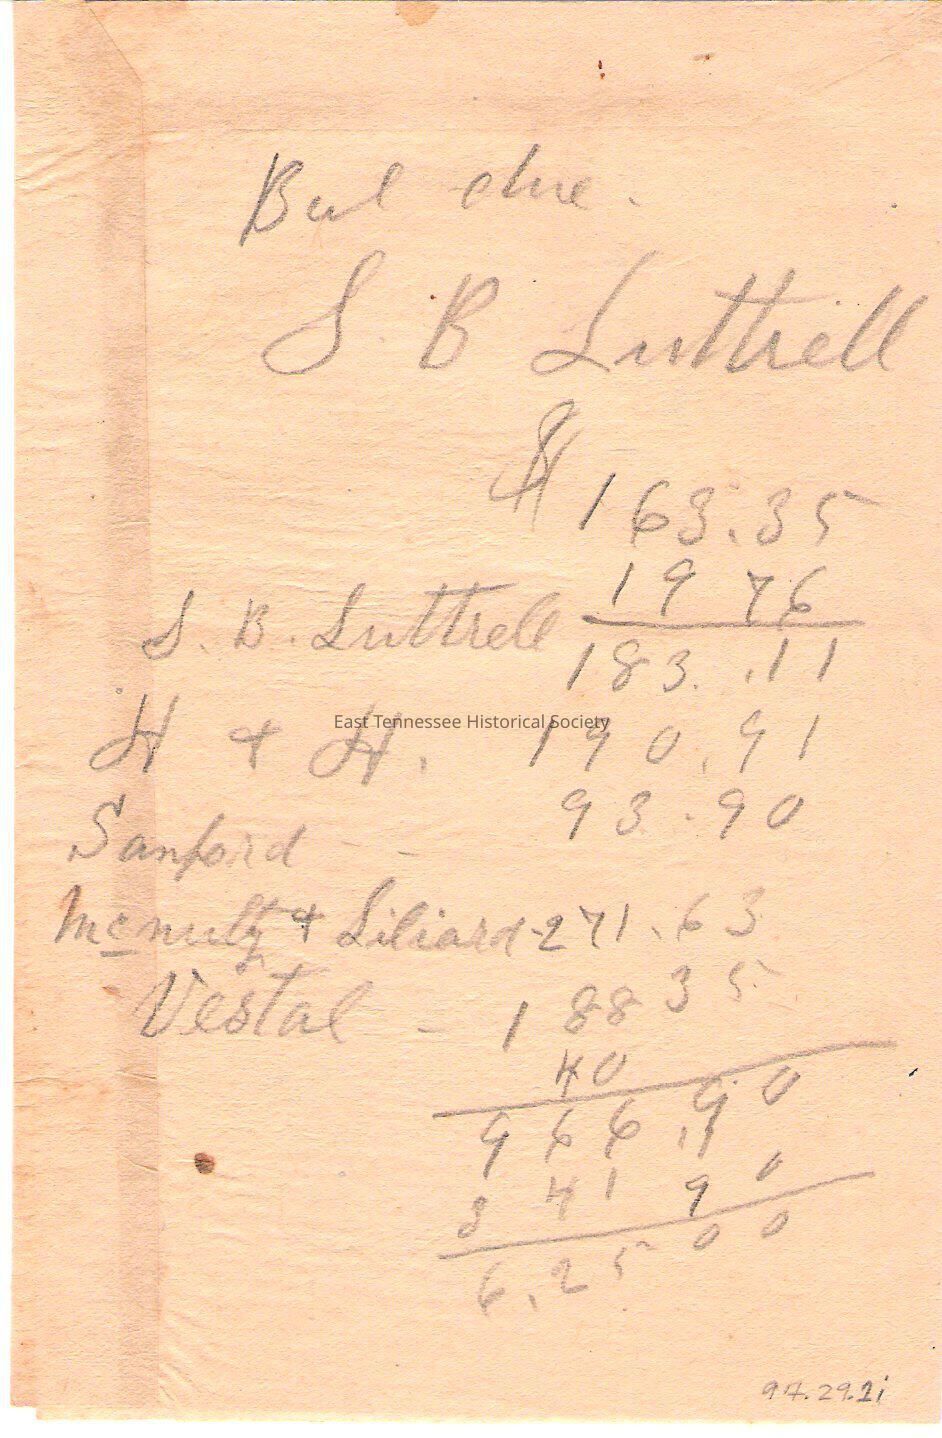 Bal due.
S. B Luttrell
$ 163.35
19 76
S. B. Luttrell 183.11
East Tennessee Historical Society
H & H. 190.91
Sanford - - 93.90
McNulty & Liliard - 271.63
Vestal - 188 35
40
966.90
341 90
6.25 00
97.29.2i